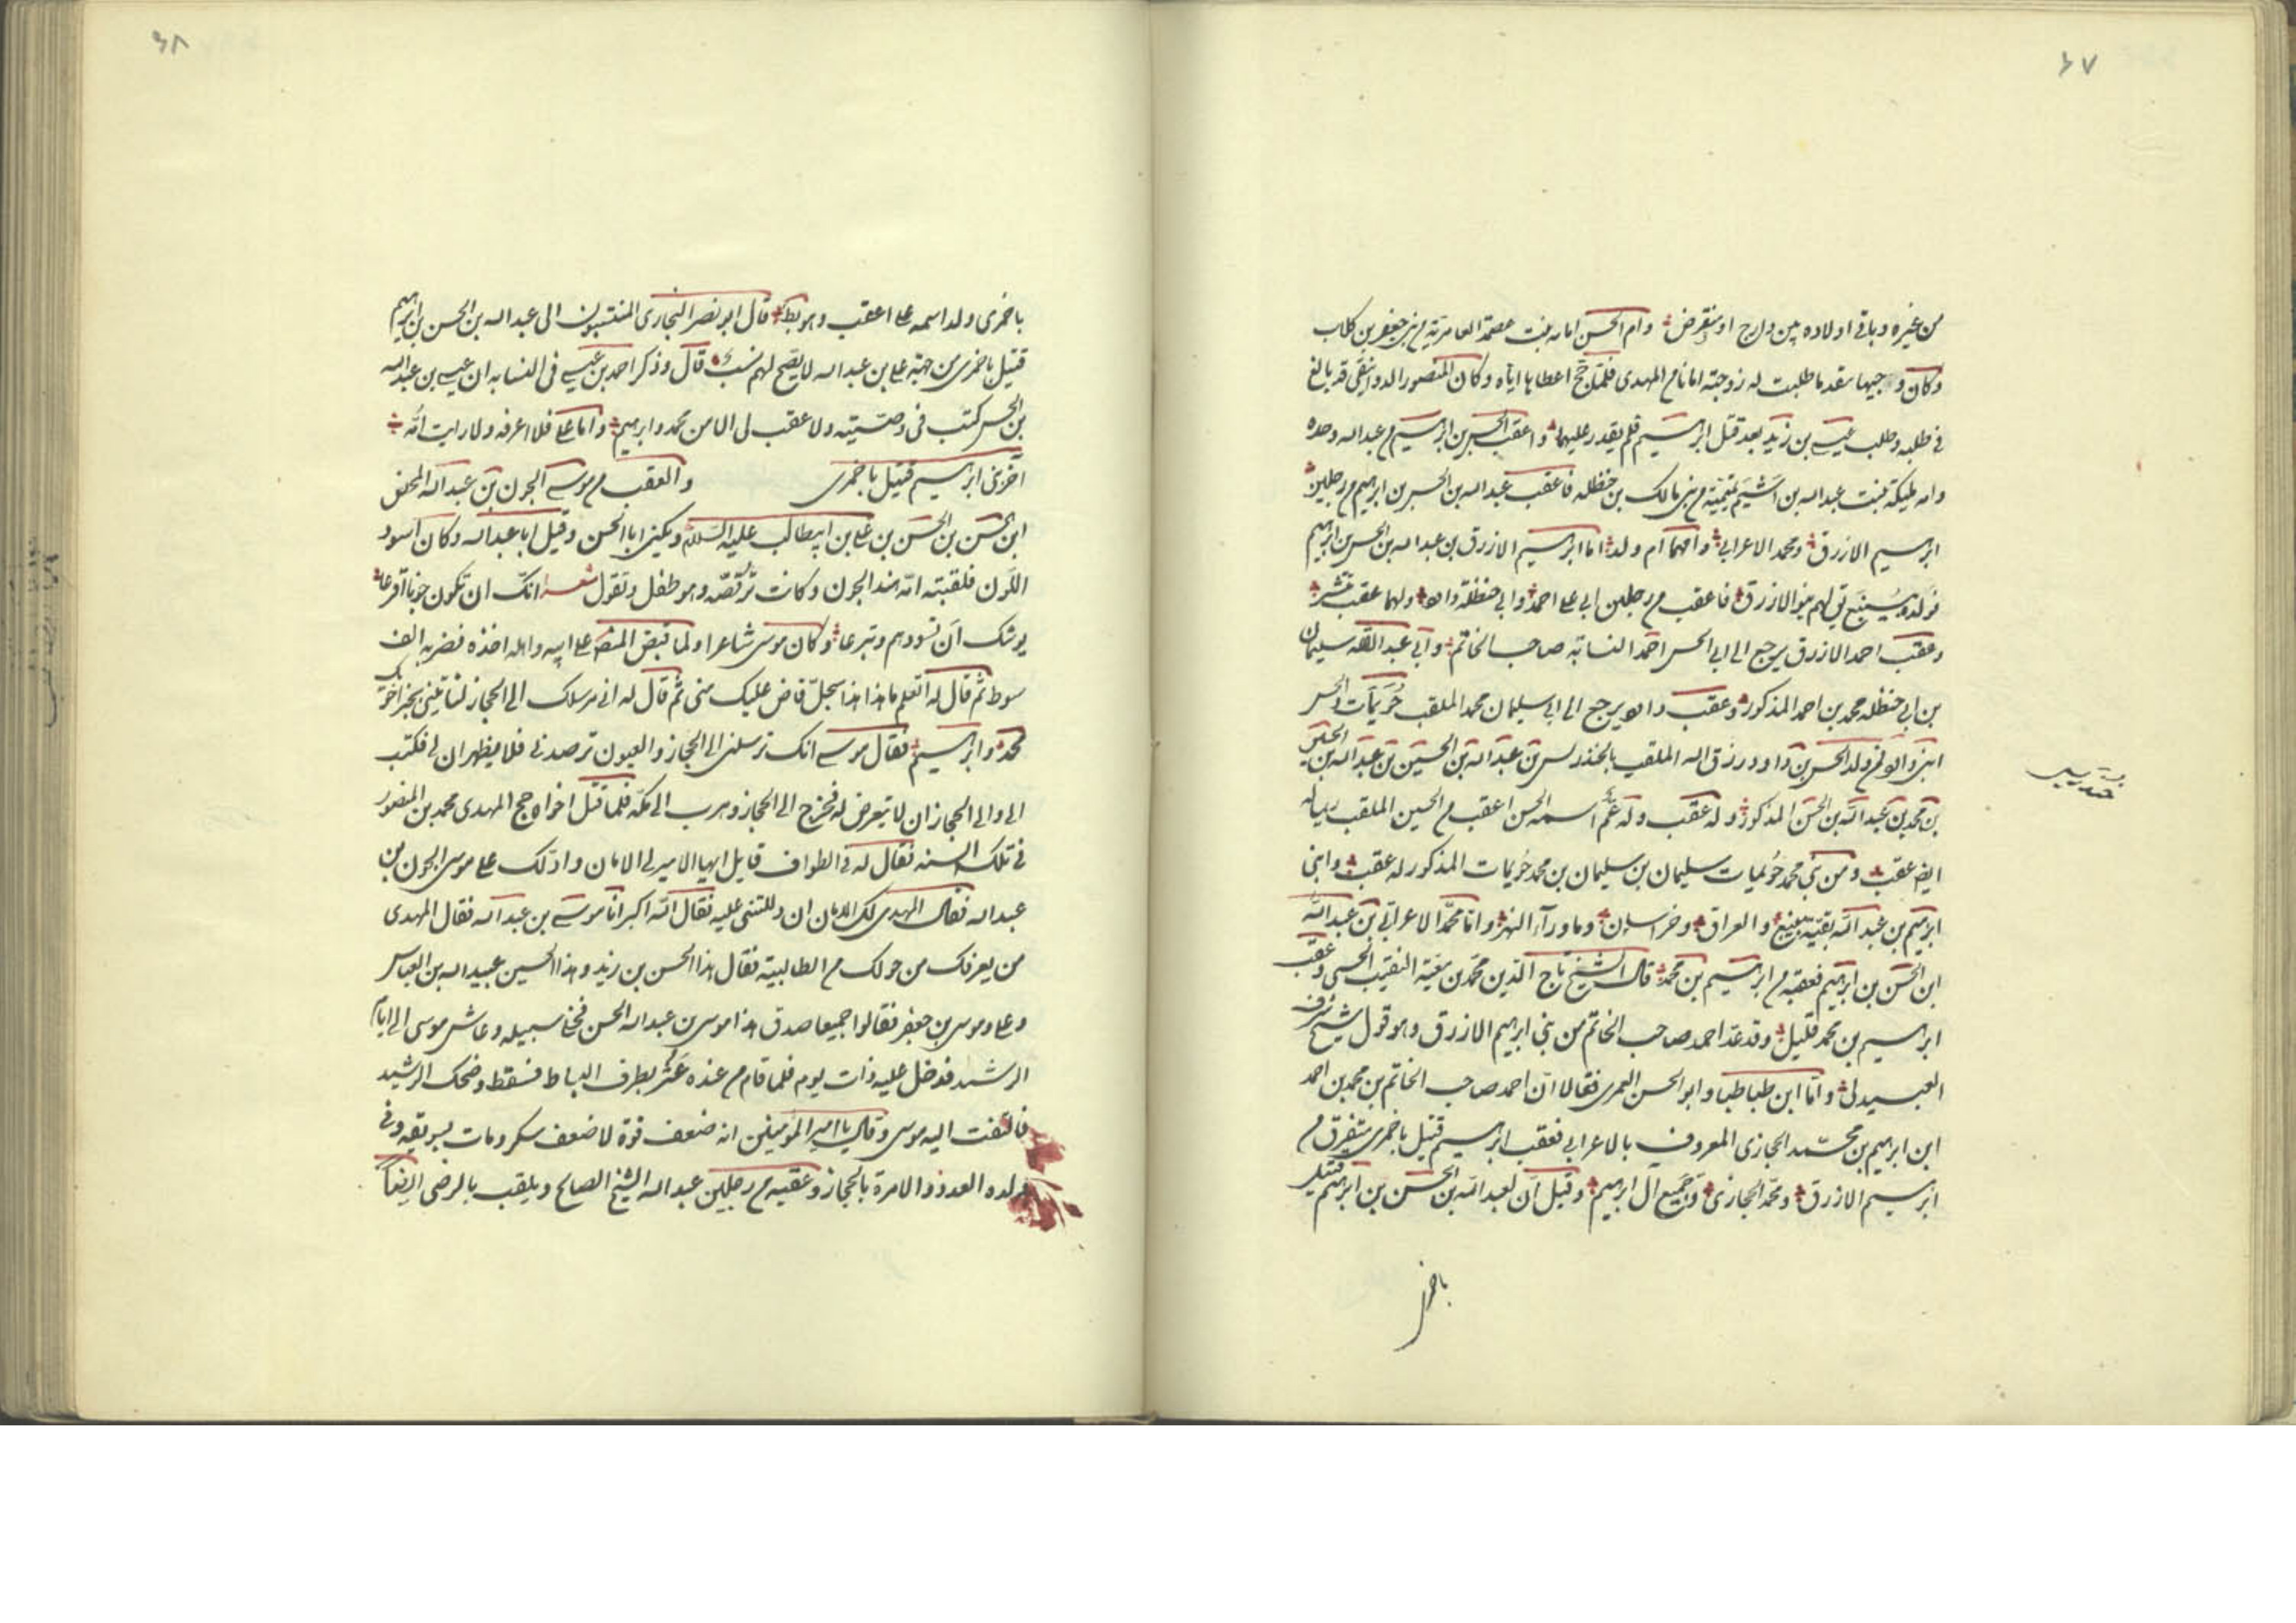 ٦٧
من غيره وباقى اولاده بين دارج او منقرض وام الحسن امامه بنت عصمة العامرية من بنى جعفر بن كلاب
وكان وجيها مقدما طلبت له زوجته امانا من المهدى فلما حج اعطاها اياه وكان المنصور الدوانيقى قد بالغ
فى طلبه وطلب عيسى بن زيد بعد قتل ابراهيم فلم يقدر عليهما واعقب الحسن بن ابراهيم من عبدالله وحده
وامه مليكة بنت عبدالله بن اشيم تميمية من بنى مالك بن حنظله فاعقب عبدالله بن الحسن بن ابراهيم من رجلين
ابراهيم الازرق ومحمد الاعرابى وامهما ام ولد اما ابراهيم الازرق بن عبدالله بن الحسن بن ابراهيم
فولده بينبع يق لهم بنو الازرق فاعقب من رجلين ابى على احمد وابى حنظله داود ولهما عقب منتشر
وعقب احمد الازرق يرجع الى ابى الحسن احمد النسابة صاحب الخاتم وابى عبدالله سليمان
بن ابى حنظله محمد بن احمد المذكور وعقب داود يرجع الى ابى سليمان محمد الملقب حُزيمات والحسن
ابنى داود فمن ولد الحسن بن داود رزق الله الملقب بالخندريس بن عبدالله بن الحسين بن عبدالله بن الحسن
بن محمد بن عبدالله بن الحسن المذكور وله عقب وله عم اسمه الحسن اعقب من الحسين الملقب
ايضا عقب ومن بنى محمد حُزيمات سليمان بن سليمان بن محمد حُزيمات المذكور له عقب وابنى
ابراهيم بن عبدالله بقية بينبع والعراق وخراسان وماورآء النهر واما محمد الاعرابى بن عبدالله
ابن الحسن بن ابراهيم فعقبه من ابراهيم بن محمد قال الشيخ تاج الدين محمد بن معية النقيب الحسنى وعقب
ابراهيم بن محمد قليل وقد عد احمد صاحب الخاتم من بنى ابراهيم الازرق وهو قول شيخ شرف
العبيدلى واما ابن طباطبا وابو الحسن العمرى فقالا ان احمد صاحب الخاتم بن محمد بن احمد
ابن ابراهيم بن محمد الحجازى المعروف بالاعرابى فعقب ابراهيم قتيل باخمرى متفرق من
ابراهيم الازرق ومحمد الحجازى وهم جميع آل ابراهيم وقيل ان لعبدالله بن الحسن بن ابراهيم قتيل
باخمرى
خندريس
٦٨
باخمرى ولد اسمه على اعقب وهو بط قال ابو نصر البخارى المنتسبون الى عبدالله بن الحسن بن ابراهيم
قتيل باخمرى من جهة على بن عبدالله لا يصح لهم نسب قال وذكر احمد بن عيسى فى النسابه ان عيسى بن عبدالله
بن الحسن كتب فى وصيته ولا عقب لى الا من محمد وابراهيم واما على فلا اعرفه ولا رايت امه
آخر بنى ابراهيم قتيل باخمرى والعقب من موسى الجون بن عبدالله المحض
ابن الحسن بن الحسن بن على بن ابيطالب عليه السلام ويكنى ابا الحسن وقيل ابا عبدالله وكان اسود
اللون فلقبته امه هند الجون وكانت ترقصه وهو طفل وتقول شعر انك ان تكون جونا اقرعا
يوشك ان تسودهم وتبرعا وكان موسى شاعرا ولما قبض المنصور على ابيه واهله اخذه فضربه الف
سوط ثم قال له اتعلم ما هذا هذا سجل فاض عليك منى ثم قال له انى مرسلك الى الحجاز لتاتينى بخبر اخويك
محمد وابراهيم فقال موسى انك ترسلنى الى الحجاز والعيون ترصدنى فلا يظهران لى فكتب
الى والى الحجاز ان لا يتعرض له فخرج الى الحجاز وهرب الى مكة فلما قتل اخواه حج المهدى محمد بن المنصور
فى تلك السنه فقال له فى الطواف قايل ايها الامير لى الامان وادلك على موسى الجون بن
عبدالله فقال المهدى لك الامان ان دللتنى عليه فقال الله اكبر انا موسى بن عبدالله فقال المهدى
من يعرفك من حولك من الطالبية فقال هذا الحسن بن زيد وهذا الحسين عبيدالله بن العباس
وعلى وموسى بن جعفر فقالوا جميعا صدق هذا موسى بن عبدالله الحسن فخلى سبيله وعاش موسى الى ايام
الرشيد فدخل عليه ذات يوم فلما قام من عنده عثر بطرف البساط فسقط وضحك الرشيد
فالتفت اليه موسى وقال يا امير المؤمنين انه ضعف قوة لا ضعف سكر ومات بسويقه وفى
ولده العدد والامرة بالحجاز وعقبه من رجلين عبدالله الشيخ الصالح ويلقب بالرضى ايضا